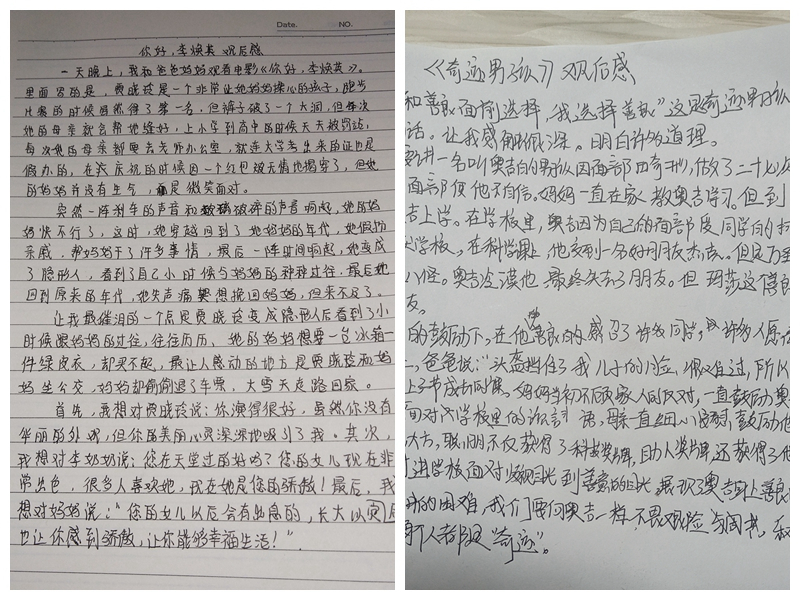 Date.
NO.
你好,李焕英 观后感
一天晚上,我和爸爸妈妈观看电影《你好,李焕英》。
里面写的是,贾晓玲是一个非常让她妈妈操心的孩子,跑步
比赛的时候虽然得了第一名,但裤子破了一个大洞,但每次
她的母亲就会帮她缝好,上小学到高中的时候天天被罚站,
每次她的母亲都要去老师办公室,就连大学考出来的证也是
假办的,在庆祝的时候因一个红包被无情地揭穿了,但她
的妈妈并没有生气,而是微笑面对。
突然一阵刹车的声音和玻璃破碎的声音响起,她的妈
妈快不行了,这时,她穿越回到了她妈妈的年代,她假扮
亲戚,帮妈妈干了许多事情,最后一阵时间响起,她变成
了隐形人,看到了自己小时候与妈妈的种种过往,最后她
回到原来的年代,她失声痛哭想挽回妈妈,但来不及了。
让我最催泪的一个点是贾晓玲变成隐形人后看到了小
时候跟妈妈的过往,往往历历、她的妈妈想要一台冰箱一
件绿皮衣,却买不起,最让人感动的地方是贾晓玲和妈
妈坐公交,妈妈却偷偷退了车票,大雪天走路回家。
首先,我想对贾晓玲说:你演得很好,虽然你没有
华丽的外貌,但你的美丽心灵深深地吸引了我。其次,
我想对李奶奶说:您在天堂过的好吗?您的女儿现在非
常出色,很多人喜欢她,现在她是您的骄傲!最后,我
想对妈妈说:“您的女儿以后会有出息的,长大以
也让你感到骄傲,让你能够幸福生活!”.
《奇迹男孩》观后感
和善良面前选择,我选择善良”这是奇迹男孩
话。让我感触很深。明白许多道理。
一名叫奥吉的男孩因面部的奇形,做了二十七次
面部使他不自信。妈妈一直在家教奥吉学习。但到
吉上学。在学校里,奥吉因为自己的面部受同学的
学校,在科学课上,他交到一名好朋友杰克。但是万圣
八怪。奥吉冷漠他最终失去了朋友。但
友。
的鼓励下,在他善良的感召了许多同学,许多人愿
,爸爸说:“头盔挡住了我儿子的脸,很难过,所以
妈妈当初不顾家人的反对,一直鼓励奥
面对学校里的流言 语,母亲一直细心 鼓励他
大方,聪明不仅获得了科技奖牌,助人奖牌,还获得了
进学校面对 目光到善意的目光,展现了奥吉身上善良
的困难,我们要向奥吉一样,不畏艰险与困
人都是“奇迹”。